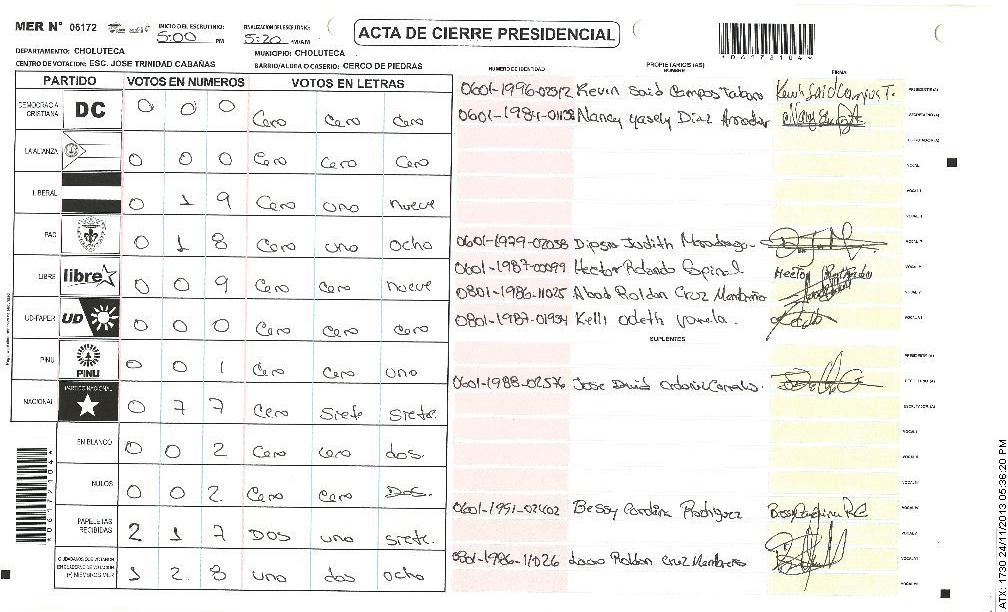 MER N° 06172
INICIO DEL ESCRUTINIO: 5:00 PM
FINALIZACION DEL ESCRUTINIO: 5:20 PM/AM
ACTA DE CIERRE PRESIDENCIAL
*06172104*
DEPARTAMENTO: CHOLUTECA
MUNICIPIO: CHOLUTECA
CENTRO DE VOTACION: ESC. JOSE TRINIDAD CABAÑAS
BARRIO/ALDEA O CASERIO: CERCO DE PIEDRAS
PARTIDO VOTOS EN NUMEROS VOTOS EN LETRAS
DEMOCRACIA CRISTIANA DC 0 0 0 Cero Cero Cero
LA ALIANZA 0 0 0 Cero Cero Cero
LIBERAL 0 1 9 Cero uno nueve
PAC 0 1 8 Cero uno ocho
LIBRE libre 0 0 9 Cero Cero nueve
UD-FAPER UD 0 0 0 Cero Cero Cero
PINU PINU 0 0 1 Cero Cero uno
NACIONAL PARTIDO NACIONAL 0 7 7 Cero Siete Siete
EN BLANCO 0 0 2 Cero Cero dos.
NULOS 0 0 2 Cero Cero Dos.
PAPELETAS RECIBIDAS 2 1 7 Dos uno siete.
CIUDADANOS QUE VOTARON (+) MIEMBROS MER 1 2 8 uno dos ocho
NUMERO DE IDENTIDAD PROPIETARIOS (AS) NOMBRE FIRMA
0601-1996-02312 Kevin Said Campos PRESIDENTE (A)
Nancy Yasely Diaz SECRETARIO (A)
ESCRUTADOR (A)
VOCAL I
0601-1979-02038 Judith
0601-1987-00099 Hector Rolando Espinal Hector
0801-1986-11025 Abad Roldan Cruz
Kelli Odeth Varela.
SUPLENTES
PRESIDENTE (A)
0601-1988-02576 Jose David SECRETARIO (A)
ESCRUTADOR (A)
VOCAL I
0601-1991-02402 Bessy Carolina Rodriguez
0801-1986-11026 Roldan Cruz
*06172104*
ATX: 1730 24/11/2013 05:36:20 PM